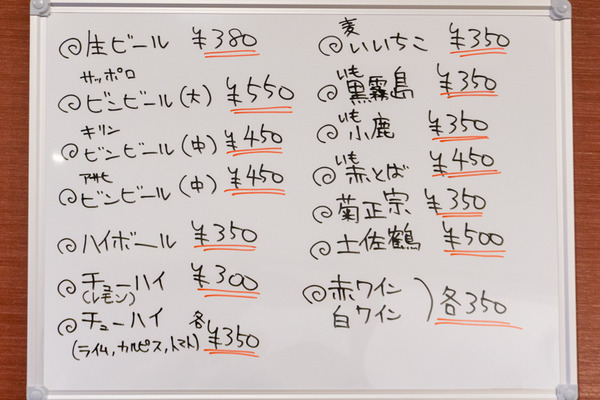 生ビール ¥380
サッポロ
ビンビール(大) ¥550
キリン
ビンビール(中) ¥450
アサヒ
ビンビール(中) ¥450
ハイボール ¥350
チューハイ ¥300
(レモン)
チューハイ 各
(ライム,カルピス,トマト) ¥350
麦
いいちこ ¥350
いも
黒霧島 ¥350
いも
小鹿 ¥350
いも
赤とば ¥450
菊正宗 ¥350
土佐鶴 ¥500
赤ワイン
白ワイン ) 各350